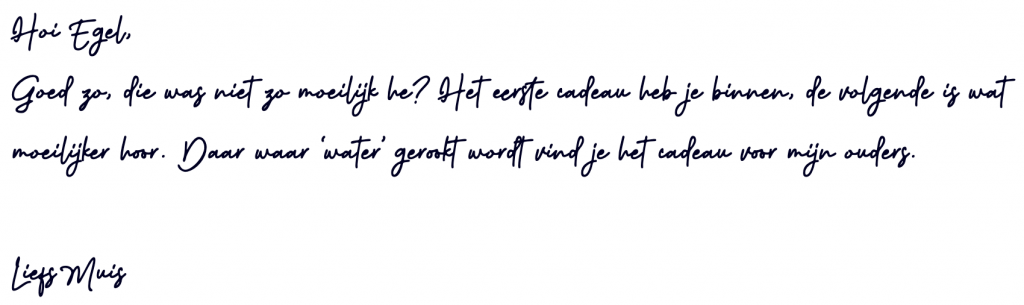 Hoi Egel,
Goed zo, die was niet zo moeilijk he? Het eerste cadeau heb je binnen, de volgende is wat
moeilijker hoor. Daar waar ‘water’ gerookt wordt vind je het cadeau voor mijn ouders.
Liefs Muis